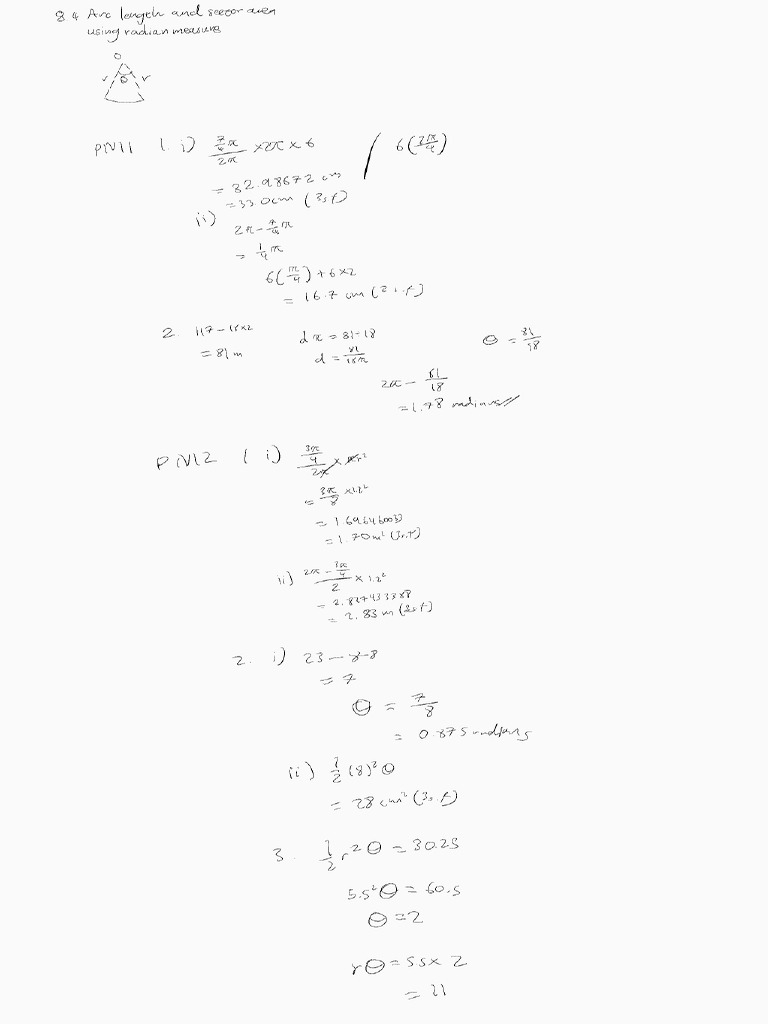 8.4 Arc length and sector area
using radian measure
O
r θ r
PN11 1. i) (7/4 π)/(2π) × 2π × 6 / 6(7π/4)
= 32.98672 cm
= 33.0cm (3sf)
ii) 2π - 7/4 π
= 1/4 π
6(π/4) + 6×2
= 16.7 cm (3s.f)
2. 117 - 18×2 dπ = 81-18 θ = 81/18
= 81m d = 81/18π
2π - 81/18
= 1.78 radians //
PN12 1 i) (3π/4)/(2π) × πr²
= 3π/8 × 1.2²
= 1.696460033
= 1.70m² (3s.f)
ii) (2π - 3π/4)/2 × 1.2²
= 2.827433388
= 2.83 m (3sf)
2. i) 23 - 8-8
= 7
θ = 7/8
= 0.875 radians
ii) 1/2 (8)² θ
= 28 cm² (3s.f)
3. 1/2 r² θ = 30.25
5.5² θ = 60.5
θ = 2
rθ = 5.5 × 2
= 11